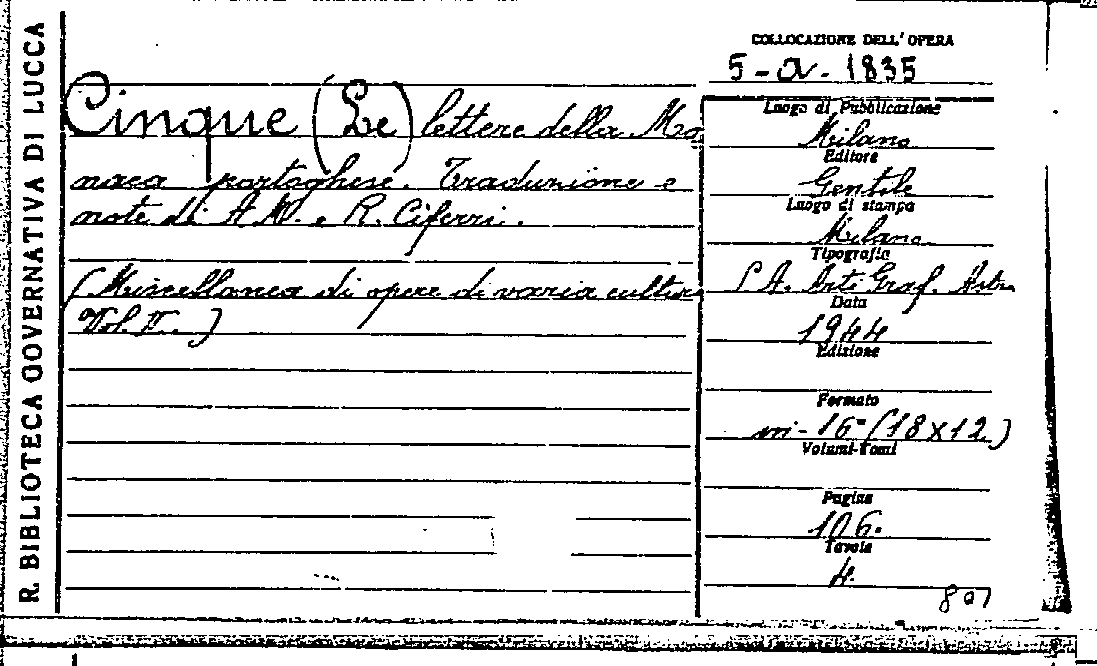 R. BIBLIOTECA GOVERNATIVA DI LUCCA
COLLOCAZIONE DELL'OPERA
5-a-1835
Cinque (Le) lettere della Mo
naca portoghese. Traduzione e
note di A. M. e R. Ciferri.
(Miscellanea di opere di varia cultura
Vol. II.)
Luogo di Pubblicazione
Milano
Editore
Gentile
Luogo di stampa
Milano
Tipografia
S. A. Arti Graf. Astra
Data
1944
Edizione
Formato
in-16° (18x12)
Volumi-Tomi
Pagine
106.
Tavole
4.
807